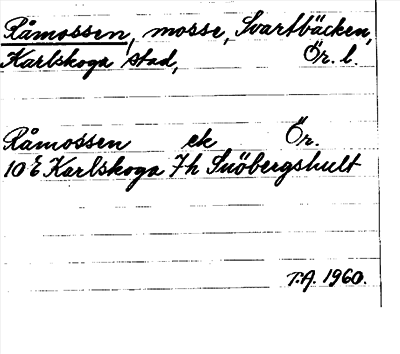 Råmossen, mosse, Svartbäcken,
Karlskoga stad, Ör. l.
Råmossen ek Ör.
10 E Karlskoga 7h Snöbergshult
T.A. 1960.